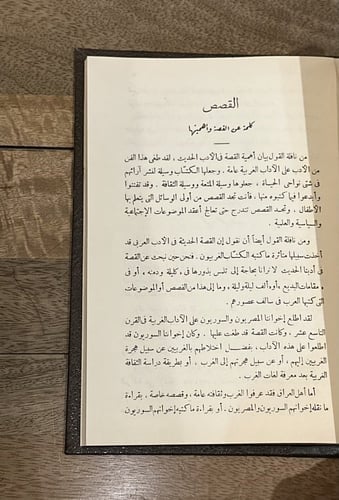 القصص
كلمة عن القصة وأهميتها
من نافلة القول بيان أهمية القصة في الادب الحديث ، لقد طغى هذا الفن
من الادب على الآداب الغربية عامة . وجعلها الكتّاب وسيلة لنشر آرائهم
في شتى نواحي الحياة ، جعلوها وسيلة للمتعة ووسيلة للثقافة . وقد تفننوا
وأبدعوا فيما كتبوه منها ، فأنت تجد القصص من أولى الوسائل التي يتعلم بها
الأطفال ، وتجد القصص تتدرج حتى تعالج أعقد الموضوعات الاجتماعية
والسياسية والعلمية .
ومن نافلة القول أيضاً أن نقول إن القصة الحديثة في الأدب العربي قد
أخذت سبيلها متأثرة ما كتبه الكتّاب الغربيون . فنحن حين نبحث عن القصة
في أدبنا الحديث لا نرانا بحاجة إلى تلمس بذورها في ، كليلة ودمنة ، أو في
، مقامات البديع ، أو ألف ليلة وليلة ، وما إلى هذا من القصص أو الموضوعات
التي كتبها العرب في سالف عصورهم .
لقد اطلع إخواننا المصريون والسوريون على الآداب الغربية في القرن
التاسع عشر ، وكانت القصة قد طغت عليها . وكان إخواننا السوريون قد
اطلعوا على هذه الآداب ، بفضل اختلاطهم بالغربيين عن سبيل هجرة
الغربيين إليهم ، أو عن سبيل هجرتهم إلى الغرب ، أو بطريقة دراسة الثقافة
الغربية بعد معرفة لغات الغرب .
أما أهل العراق فقد عرفوا الغرب وثقافته عامة ، وقصصه خاصة ، بقراءة
ما نقله إخوانهم السوريون والمصريون . أو بقراءة ما كتبه إخوانهم السوريون